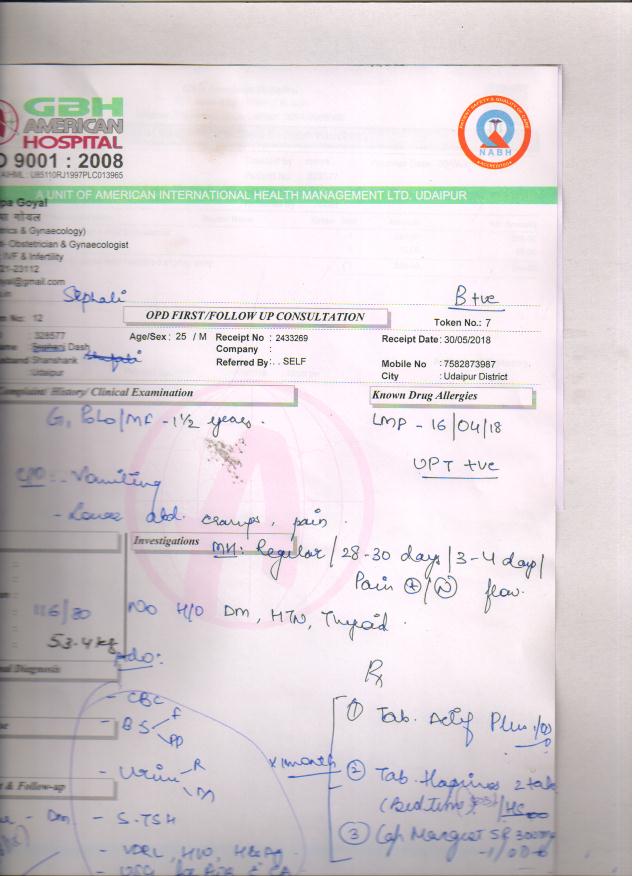 GBH
AMERICAN
HOSPITAL
9001 : 2008
AIHML : U85110RJ1997PLC013965
PATIENT SAFETY & QUALITY OF CARE
NABH
ACCREDITED
A UNIT OF AMERICAN INTERNATIONAL HEALTH MANAGEMENT LTD. UDAIPUR
pa Goyal
गोयल
& Gynaecology)
Obstetrician & Gynaecologist
IVF & Infertility
21-23112
@gmail.com
Sephali
B +ve
OPD FIRST/FOLLOW UP CONSULTATION
No: 12
Token No.: 7
: 328577
Age/Sex : 25 / M
Receipt No : 2433269
Receipt Date : 30/05/2018
Dash
Company :
Shanshank
Referred By : . . SELF
Mobile No : 7582873987
Udaipur
City : Udaipur District
Complaint/ History/ Clinical Examination
Known Drug Allergies
G1 P0L0/MF - 1½ years.
LMP - 16/04/18
UPT +ve
C/O :- Vomiting
- Lower abd. cramps, pain.
Investigations
MH: Regular / 28-30 days / 3-4 day /
Pain + / N flow.
116/80
No H/O DM, HTN, Thyroid.
53.4 kg
Ado:
Diagnosis
Rx
- CBC
1 Tab. Plus 1/OD
- BS F
PP
- Urine R
M
x 1 month
2 Tab. 2 tab
& Follow-up
(Bed time) HS
- S. TSH
3 Cap SR 300mg
- 1/OD
- VDRL, HIV, HBsAg